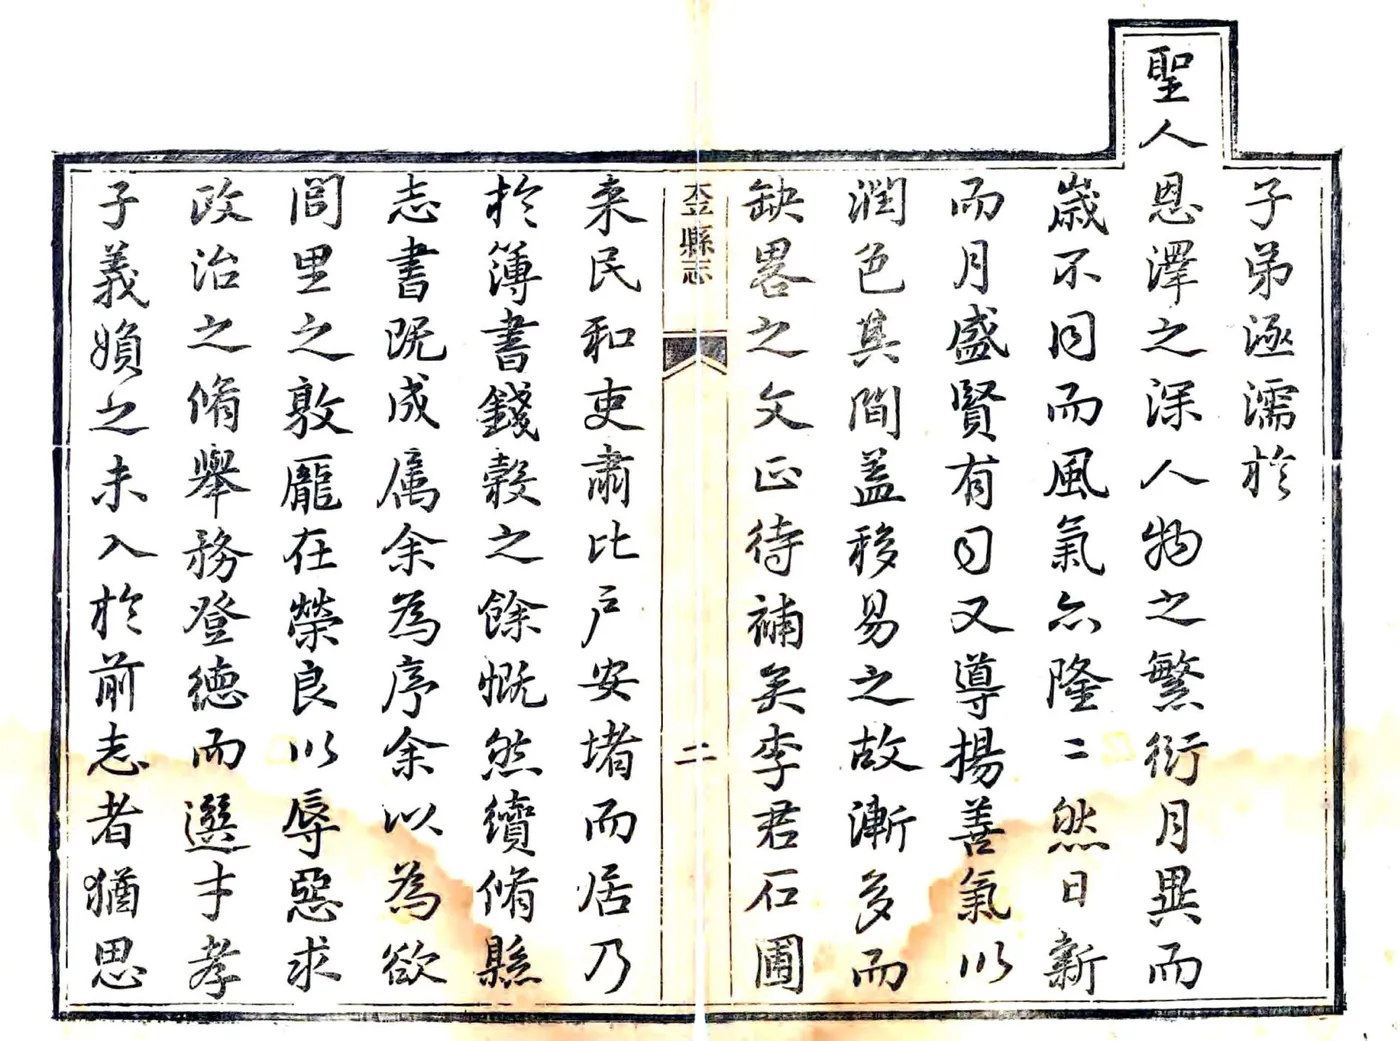 子弟涵濡於
聖人恩澤之深人物之繁衍月異而
歲不同而風氣亦隆〻然日新
而月盛賢有司又導揚善氣以
潤色其間蓋移易之故漸多而
缺畧之文正待補矣李君石圃
縣志
二
来民和吏肅比戶安堵而居乃
於簿書錢穀之餘慨然續脩縣
志書既成属余為序余以為欲
閭里之敦龐在榮良以辱惡求
政治之脩舉務登德而選才孝
子義媍之未入於前志者猶思